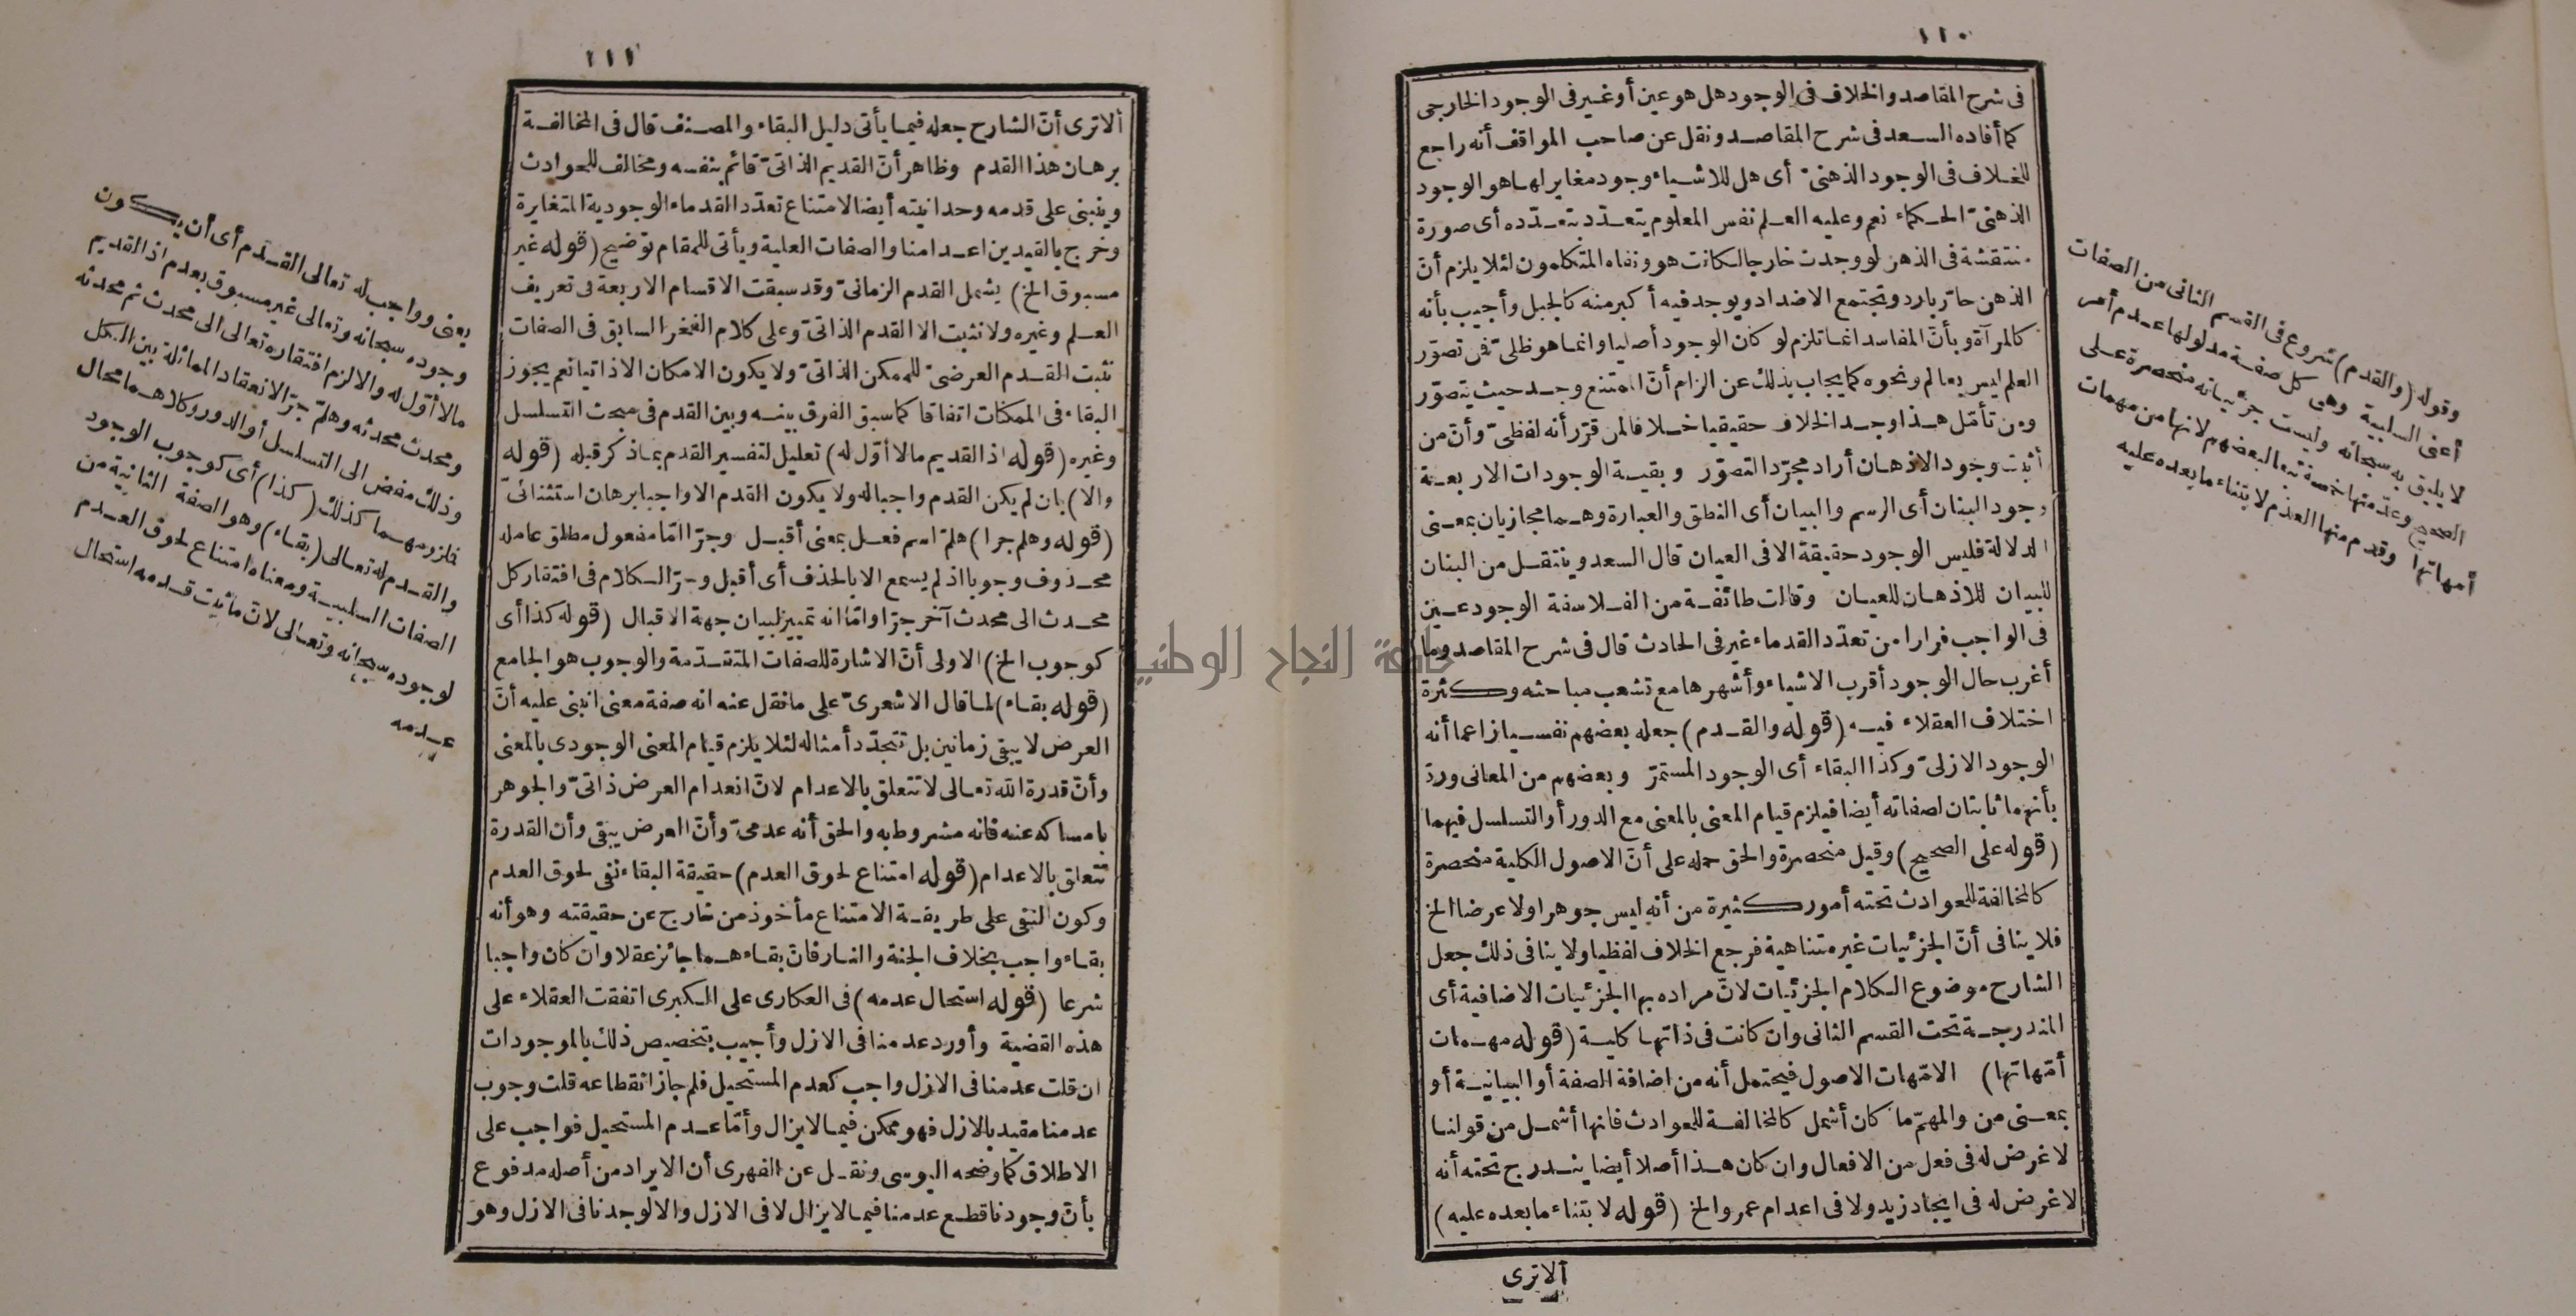 ١١٠
فى شرح المقاصد والخلاف فى الوجود هل هو عين أو غير فى الوجود الخارجى
كما أفاده السعد فى شرح المقاصد ونقل عن صاحب المواقف أنه راجع
للخلاف فى الوجود الذهنىّ أى هل للاشياء وجود مغاير لها هو الوجود
الذهنىّ الحكماء نعم وعليه العلم نفس المعلوم يتعدّد بتعدّده أى صورة
منتقشة فى الذهن لو وجدت خارجا لكانت هو ونفاه المتكلمون لئلا يلزم أنّ
الذهن حارّ بارد وتجتمع الاضداد ويوجد فيه أكبر منه كالجبل وأجيب بأنه
كالمرآة وبأنّ المفاسد انما تلزم لو كان الوجود أصليا وانما هو ظلىّ فى تصوّر
العلم ليس بعالم ونحوه كما يجاب بذلك عن الزام أنّ الممتنع وجد حيث يتصوّر
ومن تأمّل هذا وجد الخلاف حقيقيا خلافا لمن قرّر أنه لفظىّ وأنّ من
أثبت وجود الاذهان أراد مجرّد التصوّر وبقية الوجودات الاربعة
وجود البنان أى الرسم والبيان أى النطق والعبارة وهما مجازيان بمعنى
الدلالة فليس الوجود حقيقة الا فى العيان قال السعد وينتقل من البنان
للبيان للاذهان للعيان وقالت طائفة من الفلاسفة الوجود عين
فى الواجب فرارا من تعدّد القدماء غير فى الحادث قال فى شرح المقاصد وما
أغرب حال الوجود أقرب الاشياء وأشهرها مع تشعب مباحثه وكثرة
اختلاف العقلاء فيه (قوله والقدم) جعله بعضهم نفسيا زاعما أنه
الوجود الازلىّ وكذا البقاء أى الوجود المستمرّ وبعضهم من المعانى وردّ
بأنهما ثابتان لصفاته أيضا فيلزم قيام المعنى بالمعنى مع الدور أو التسلسل فيهما
(قوله على الصحيح) وقيل منحصرة والحق حمله على أنّ الاصول الكلية منحصرة
كالمخالفة للحوادث تحته أمور كثيرة من أنه ليس جوهرا ولا عرضا الخ
فلا ينافى أنّ الجزئيات غير متناهية فرجع الخلاف لفظيا ولا ينافى ذلك جعل
الشارح موضوع الكلام الجزئيات لانّ مراده بها الجزئيات الاضافية أى
المندرجة تحت القسم الثانى وان كانت فى ذاتها كلية (قوله مهمات
أمّهاتها) الامّهات الاصول فيحتمل أنه من اضافة الصفة أو البيانية أو
بمعنى من والمهمّ ما كان أشمل كالمخالفة للحوادث فانها أشمل من قولنا
لا غرض له فى فعل من الافعال وان كان هذا أصلا أيضا يندرج تحته أنه
لا غرض له فى ايجاد زيد ولا فى اعدام عمرو الخ (قوله لابتناء ما بعده عليه)
ألا ترى
وقوله (والقدم) شروع فى القسم الثانى من الصفات
أعنى السلبية وهى كل صفة مدلولها عدم أمر
لا يليق به سبحانه وليست جزئياته منحصرة على
الصحيح وعدّ منها خمسة تبعا لبعضهم لانها من مهمات
أمهاتها وقدم منها القدم لابتناء ما بعده عليه
١١١
ألا ترى أنّ الشارح جعله فيما يأتى دليل البقاء والمصنف قال فى المخالفة
برهان هذا القدم وظاهر أنّ القديم الذاتىّ قائم بنفسه ومخالف للحوادث
وينبنى على قدمه وحدانيته أيضا لامتناع تعدّد القدماء الوجودية المتغايرة
وخرج بالقيدين اعدامنا والصفات العلية ويأتى للمقام توضيح (قوله غير
مسبوق الخ) يشمل القدم الزمانىّ وقد سبقت الاقسام الاربعة فى تعريف
العلم وغيره ولا نثبت الا القدم الذاتىّ وعلى كلام الفخر السابق فى الصفات
نثبت القدم العرضىّ للممكن الذاتىّ ولا يكون الامكان الا ذاتيا نعم يجوز
البقاء فى الممكنات اتفاقا كما سبق الفرق بينه وبين القدم فى مبحث التسلسل
وغيره (قوله اذ القديم مالا أوّل له) تعليل لتفسير القدم بما ذكر قبله (قوله
والا) بان لم يكن القدم واجبا له ولا يكون القدم الا واجبا برهان استثنائىّ
(قوله وهلم جرا) هلمّ اسم فعل بمعنى أقبل وجرّا امّا مفعول مطلق عامله
محذوف وجوبا اذ لم يسمع الا بالحذف أى أقبل وجرّ الكلام فى افتقار كل
محدث الى محدث آخر جرّا وامّا انه تمييز لبيان جهة الاقبال (قوله كذا أى
كوجوب الخ) الاولى أنّ الاشارة للصفات المتقدّمة والوجوب هو الجامع
(قوله بقاء) لما قال الاشعرىّ على ما نقل عنه انه صفة معنى انبنى عليه أنّ
العرض لا يبقى زمانين بل تتجدّد أمثاله لئلا يلزم قيام المعنى الوجودى بالمعنى
وأنّ قدرة الله تعالى لا تتعلق بالاعدام لانّ انعدام العرض ذاتىّ والجوهر
بامساكه عنه فانه مشروط به والحق أنه عدمىّ وأنّ العرض يبقى وأن القدرة
تتعلق بالاعدام (قوله امتناع لحوق العدم) حقيقة البقاء نفى لحوق العدم
وكون النفى على طريقة الامتناع مأخوذ من خارج عن حقيقته وهو أنه
بقاء واجب بخلاف الجنة والنار فانّ بقاءهما جائز عقلا وان كان واجبا
شرعا (قوله استحال عدمه) فى العكارى على الكبرى اتفقت العقلاء على
هذه القضية وأورد عدمنا فى الازل وأجيب بتخصيص ذلك بالموجودات
ان قلت عدمنا فى الازل واجب كعدم المستحيل فلم جاز انقطاعه قلت وجوب
عدمنا مقيد بالازل فهو ممكن فيما لا يزال وأمّا عدم المستحيل فواجب على
الاطلاق كما وضحه اليوسى ونقل عن الفهرى أن الايراد من أصله مدفوع
بأنّ وجودنا قطع عدمنا فيما لا يزال لا فى الازل والا لوجدنا فى الازل وهو
يعنى وواجب له تعالى القدم أى أن يكون
وجوده سبحانه وتعالى غير مسبوق بعدم اذ القديم
مالا أوّل له والا لزم افتقاره تعالى الى محدث ثم محدثه
ومحدث محدثه وهلمّ جرّا لانعقاد المماثلة بين الكل
وذلك مفض الى التسلسل أو الدور وكلاهما محال
فلزومهما كذلك (كذا) أى كوجوب الوجود
والقدم له تعالى (بقاء) وهو الصفة الثانية من
الصفات السلبية ومعناه امتناع لحوق العدم
لوجوده سبحانه وتعالى لانّ ما ثبت قدمه استحال
عدمه
جامعة النجاح الوطنية